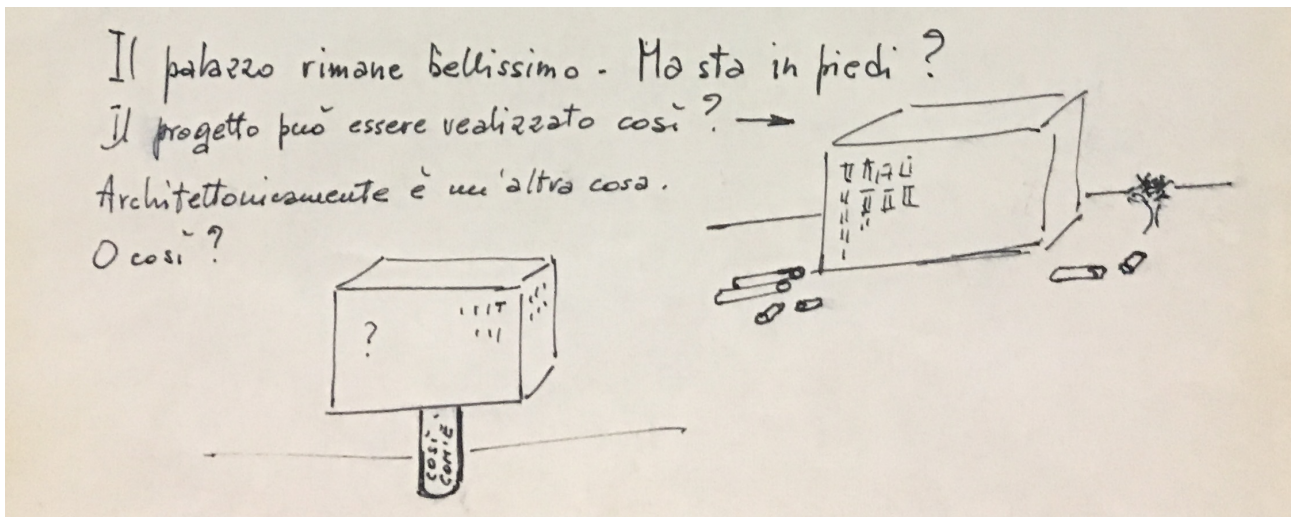 Il palazzo rimane bellissimo - Ma sta in piedi ?
Il progetto può essere realizzato così ? →
Architettonicamente è un'altra cosa.
O così ?
?
COSÌ
COM'È